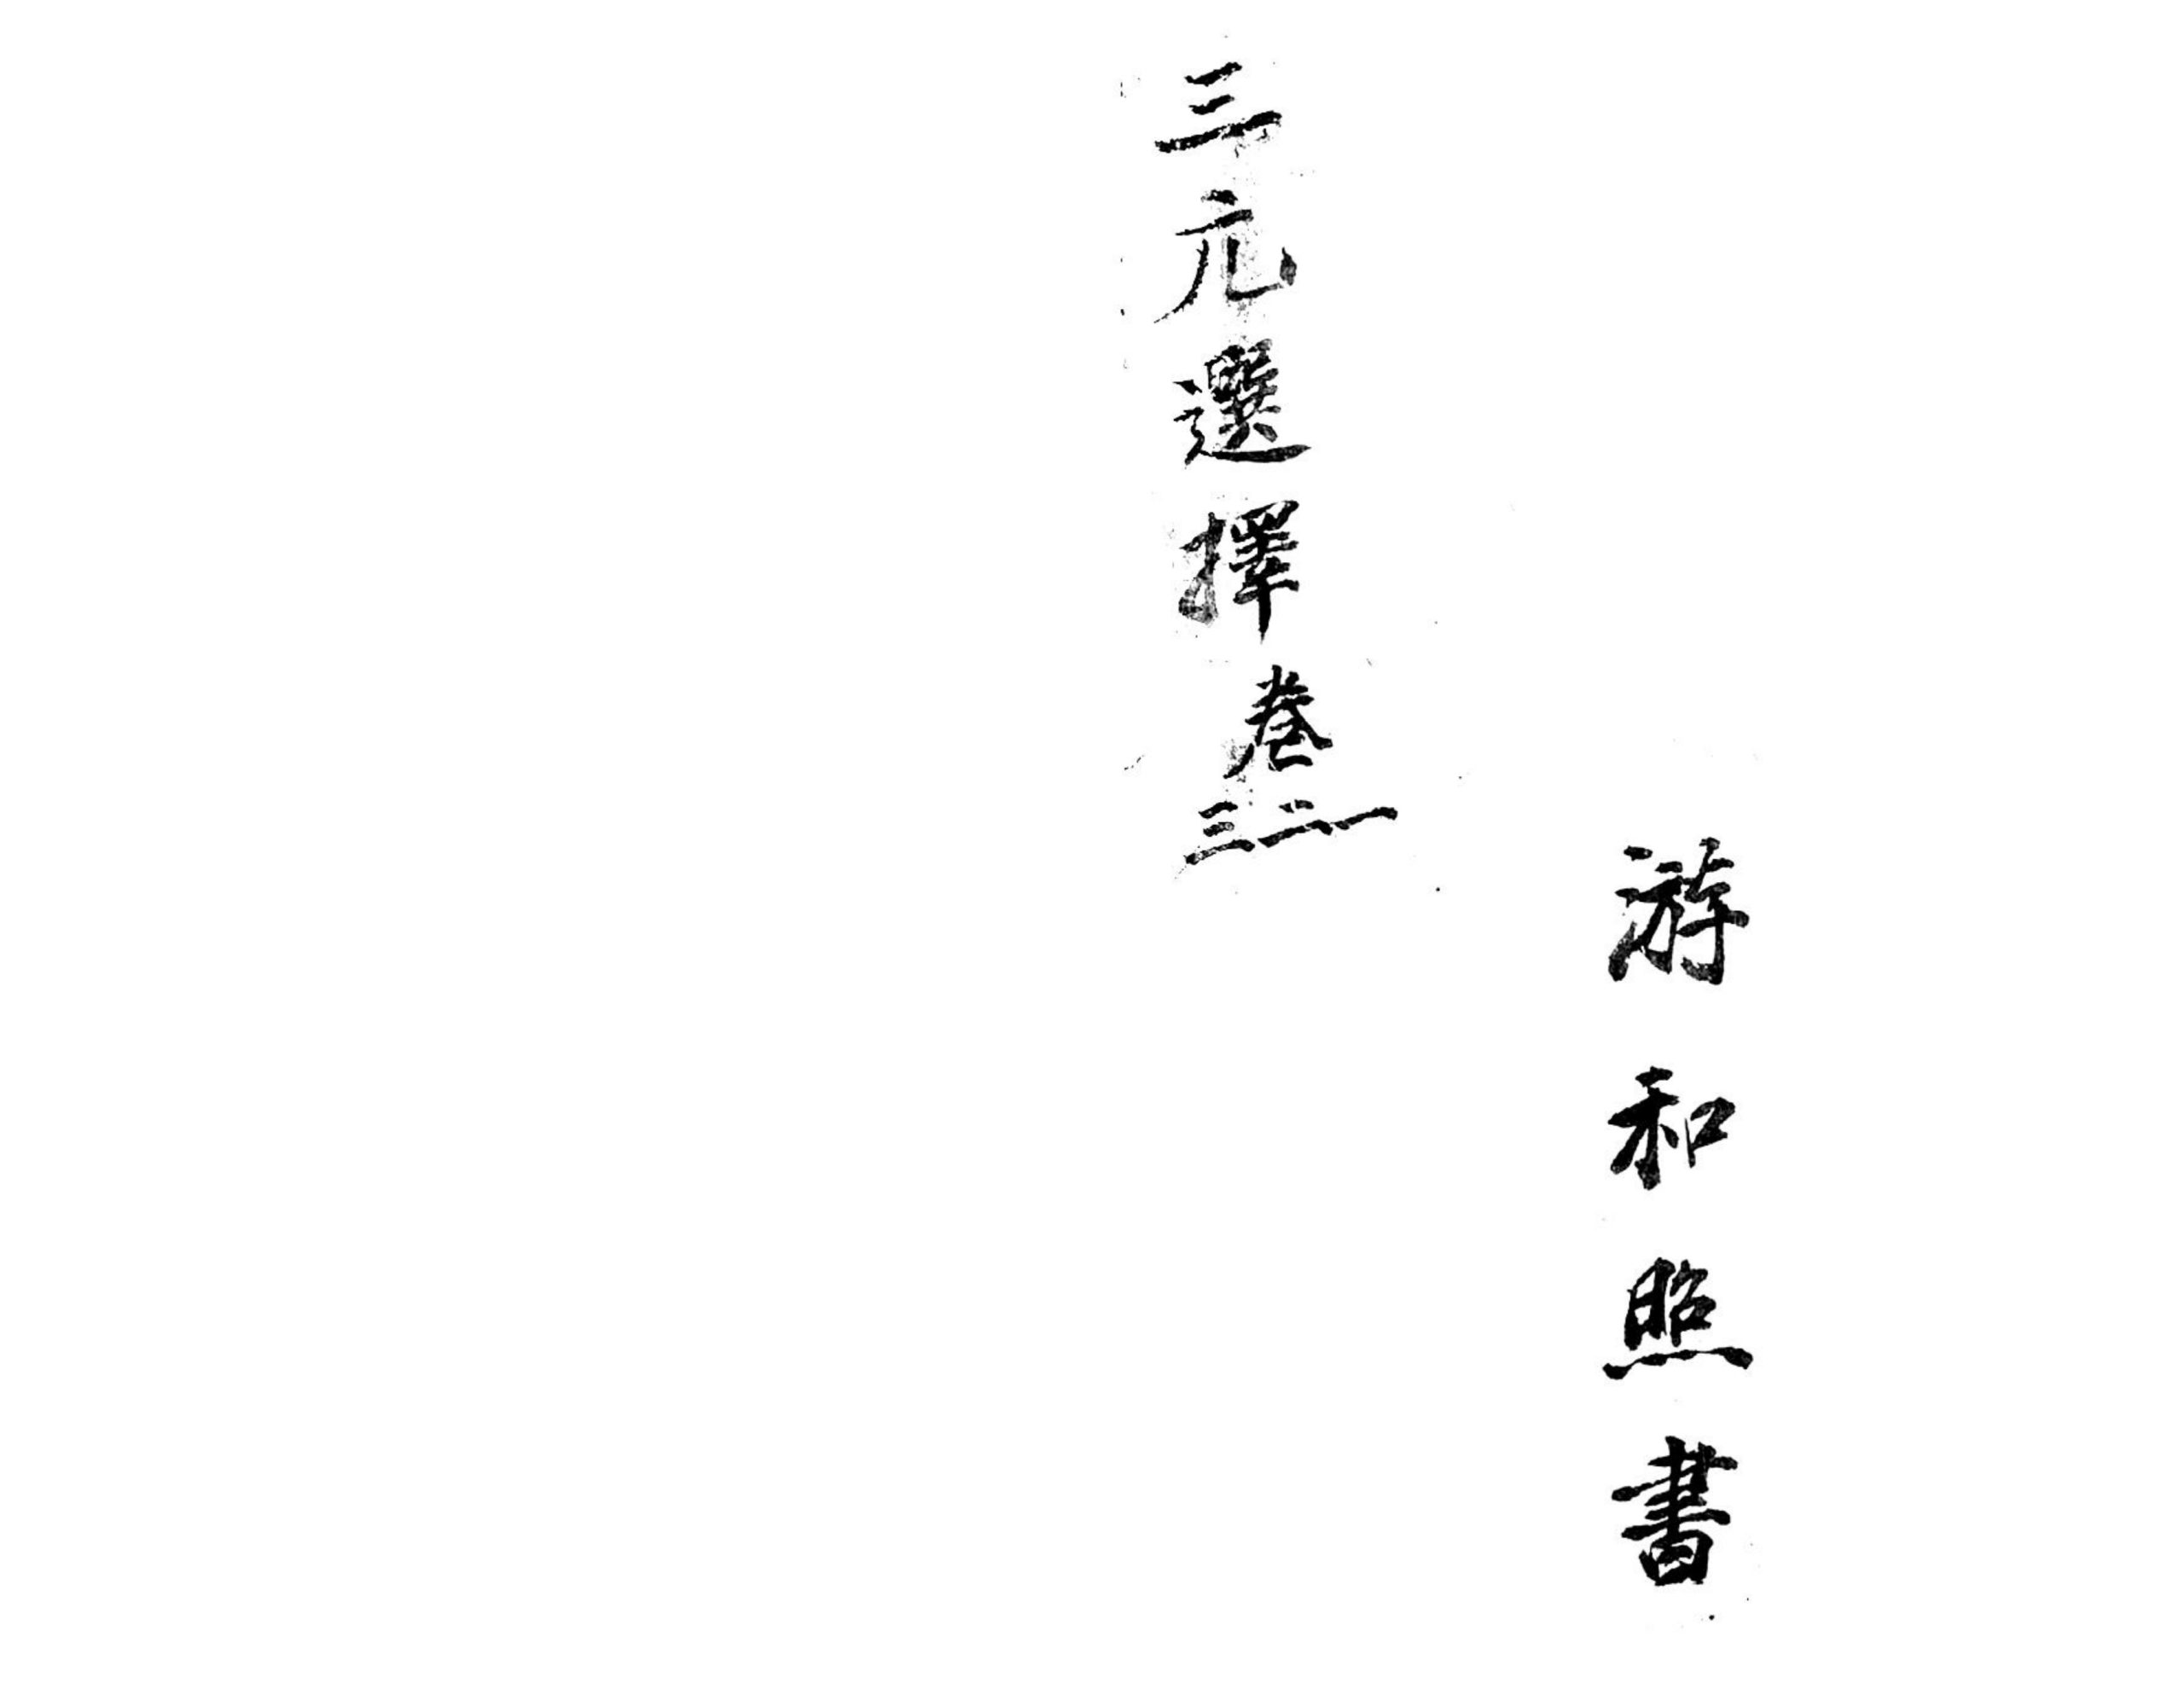 游和照書
三元選擇卷一二三